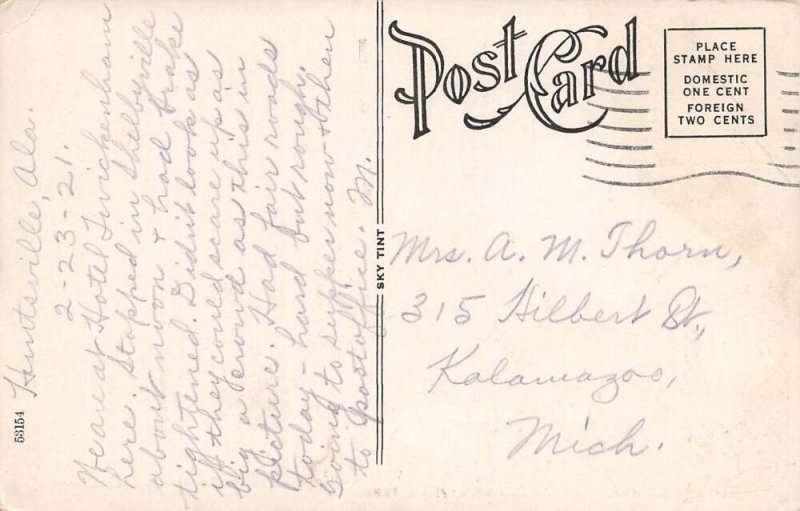 Huntsville, Ala.
2-23-21.
We are at Hotel Twickenham
here. Stopped in Shelbyville
about noon & had brake
tightened. Didn't look as
if they could scare up as
big a crowd as this in
picture. Had fair roads
today - hard but rough.
Going to supper now & then
to postoffice. M.
53154
SKY TINT
Post Card
PLACE
STAMP HERE
DOMESTIC
ONE CENT
FOREIGN
TWO CENTS
Mrs. A. M. Thorn,
315 Hilbert St.,
Kalamazoo,
Mich.